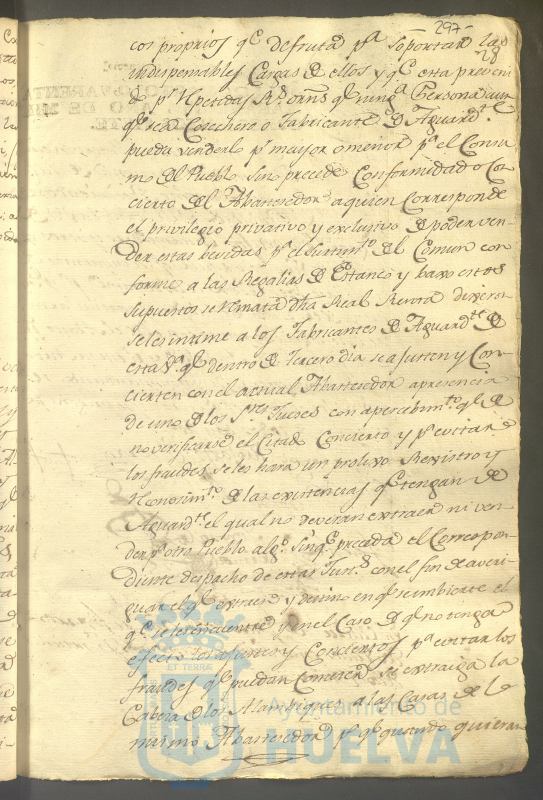 297
28
cos proprios q.e defruta p.a soportar las
indispensables Cargas de ellos y q.e esta preveni
do p.r R.s orns q.e ning.a Persona aun
q.e sea Cosechero o Fabricante de Aguard.te
pueda venderlo p.r mayor o menor p.a el Consu
mo del Pueblo sin preceder Conformidad o Con
cierto del Abastecedor a quien Corresponde
el privilegio privativo y exclusivo de poder ven
der estas bevidas p.a el surtim.to del Comun con
forme a las Regalias de Estanco y baxo estos
supuestos se remata dha Real Renta dixeron
se les intime a los Fabricantes de Aguard.te de
esta V.a q.e dentro de tercero dia se ajusten y Con-
cierten con el actual Abastecedor a presencia
de uno de los S.res Jueces con apercibim.to q.e de
no verificarse el Citado Concierto y p.a evitar
los fraudes se les hara un prolixo Rexistro y
reconosim.to de las existencias q.e tengan de
Aguard.te el qual no deveran extraer ni ven
der p.a otro Pueblo alg.o sin q.e preceda el Correspon
diente despacho de estas Just.s con el fin de averi
guar el q.e extraen y destino en q.e se imbierte el
q.e se les encuentre y en el Caso de q.e no tenga
efecto los ajustes y Conciertos p.a evitar los
fraudes q.e puedan Cometer se extraiga la
Cabeza de los Alambiques a las Casas de el
mismo Abastecedor p.a q.e quando quieran
ET TERRA
Ayuntamiento de
HUELVA